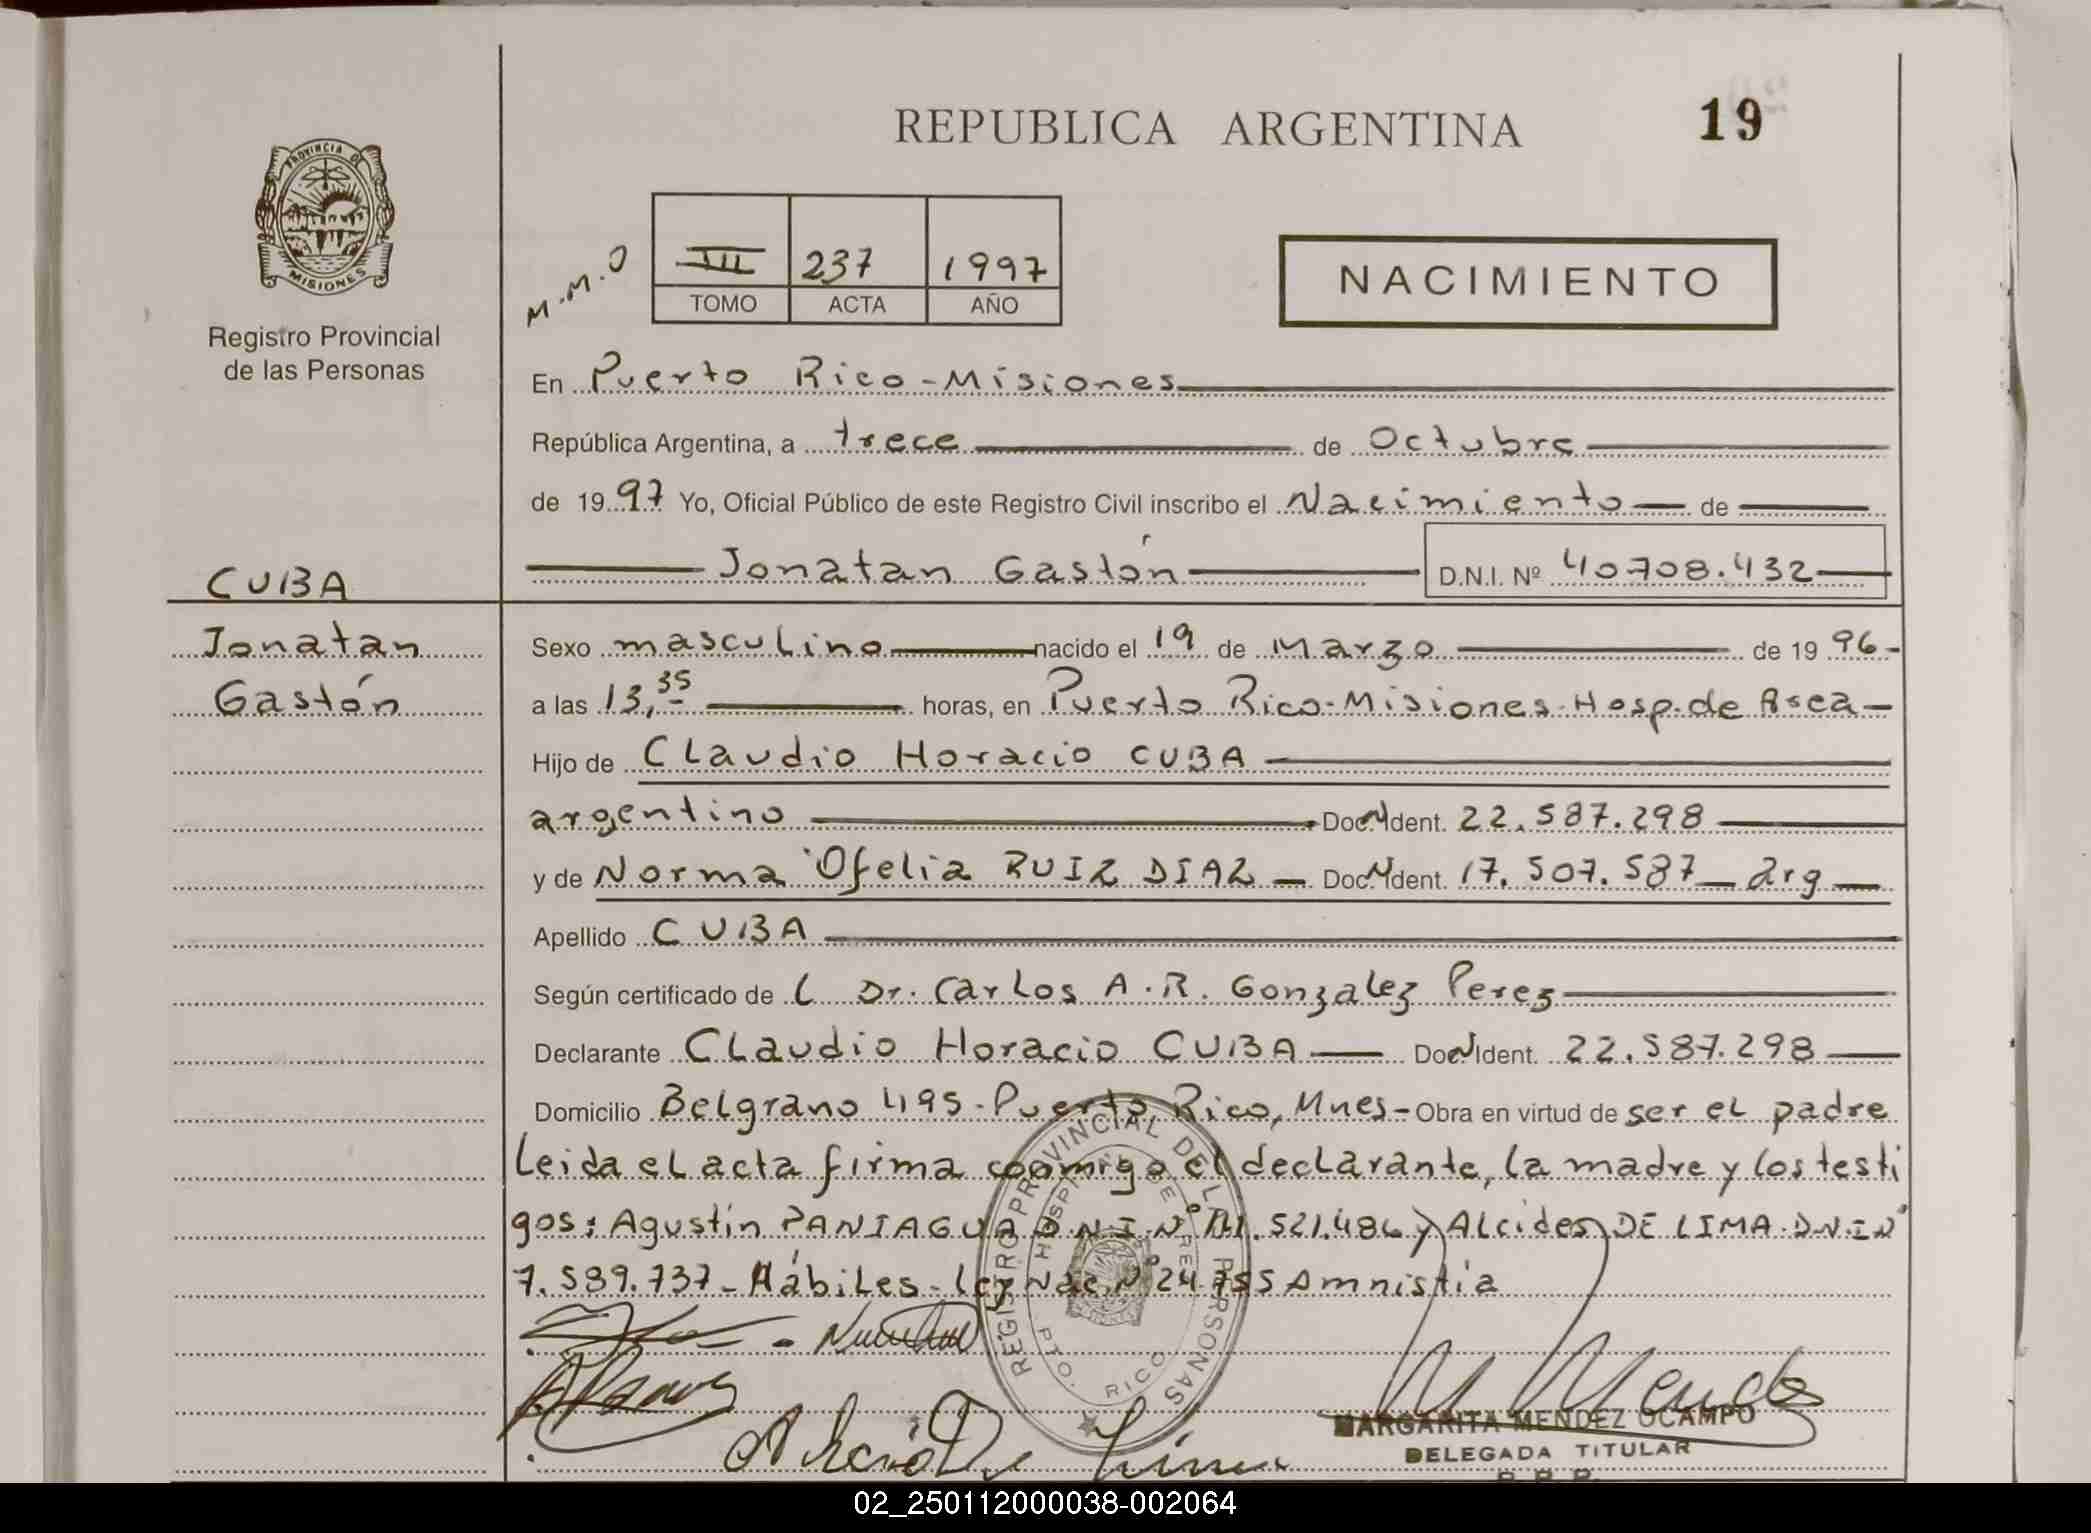 REPUBLICA ARGENTINA
19
PROVINCIA DE
MISIONES
Registro Provincial
de las Personas
M.M.O
III 237 1997
TOMO ACTA AÑO
NACIMIENTO
En Puerto Rico-Misiones
República Argentina, a trece de Octubre
de 1997 Yo, Oficial Público de este Registro Civil inscribo el Nacimiento de
Jonatan Gastón D.N.I. Nº 40708.432
CUBA
Jonatan
Gastón
Sexo masculino nacido el 19 de Marzo de 1996-
a las 13,35 horas, en Puerto Rico-Misiones-Hosp.de Area-
Hijo de Claudio Horacio CUBA
argentino Doc. Ident. 22.587.298
y de Norma Ofelia RUIZ DIAZ - Doc. Ident. 17.507.587 - arg -
Apellido CUBA
Según certificado de l Dr. Carlos A.R. Gonzalez Perez
Declarante CLaudio Horacio CUBA - Doc. Ident. 22.587.298
Domicilio Belgrano 495-Puerto Rico, Mnes- Obra en virtud de ser el padre
Leida el acta firma conmigo el declarante, la madre y los testi
gos: Agustín PANIAGUA D.N.I.Nº 521.486 y Alcides DE LIMA-D.N.I Nº
7.589.737-Hábiles-ley Nac.Nº 24.755 Amnistía
REGISTRO PROVINCIAL DE L PERSONAS
HOSPITAL DE AREA
PTO. RICO
M Mendez
MARGARITA MENDEZ OCAMPO
DELEGADA TITULAR
R.P.P.
02_250112000038-002064